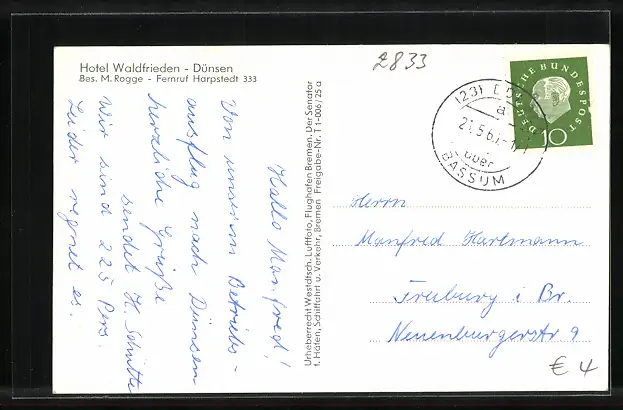 Hotel Waldfrieden - Dünsen
Bes. M. Rogge - Fernruf Harpstedt 333
2833
DEUTSCHE BUNDESPOST
10
(23)
a
21.5.6
über
BASSUM
Hallo Manfred!
Von unserem Betriebs-
ausflug nach Dünsen
herzliche Grüße
sendet H. Schütte
Wir sind 225 Pers.
Leider regnet es.
Urheberrecht Westdtsch. Luftfoto, Flughafen Bremen. Der Senator
f. Häfen, Schiffahrt u. Verkehr, Bremen Freigabe-Nr. T 1-006/25 a
Herrn
Manfred Hartmann
Freiburg i Br.
Neuenburgerstr 9
€ 4